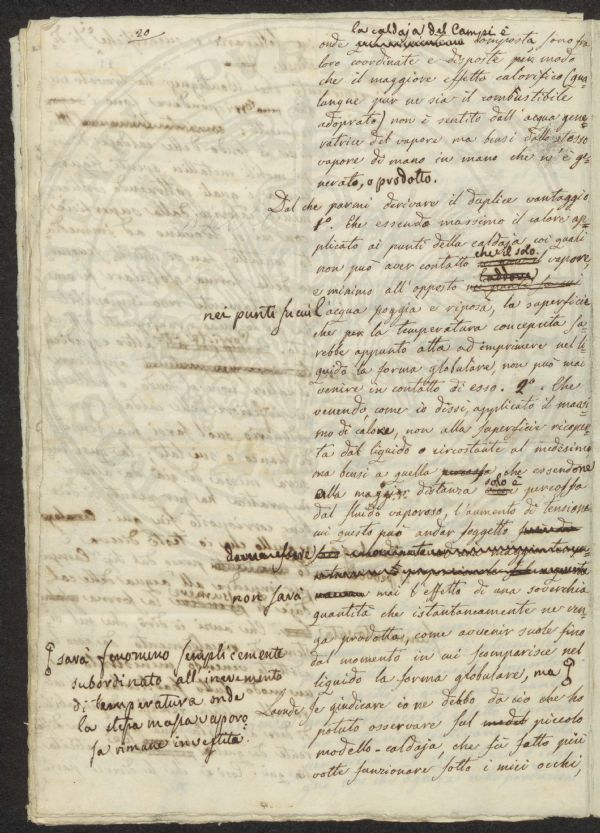 20
la caldaja del Campi è
onde composta, sono fra
loro coordinate e disposte per modo
che il maggiore effetto calorifico (qua=
lunque pur ne sia il combustibile
adoprato) non è sentito dall'acqua gene=
ratrice del vapore ma bensì dallo stesso
vapore di mano in mano che n'è ge=
nerato, o prodotto.
Dal che parmi derivare il duplice vantaggio
1º. Che essendo massimo il calore ap=
plicato ai punti della caldaja, coi quali
non può aver contatto che il solo vapore,
e minimo all'opposto
nei punti su cui l'acqua poggia e riposa, la superficie
che per la temperatura concepita sa=
rebbe appunto atta ad imprimere nel li=
quido la forma globulare, non può mai
venire in contatto di esso. 2º. Che
venendo, come io dissi, applicato il massi=
mo di calore, non alla superficie ricoper=
ta dal liquido o circostante al medesimo
ma bensì a quella che essendone
alla maggior distanza solo è percossa
dal fluido vaporoso, l'aumento di tensione
cui questo può andar soggetto
dovrà essere
non sarà mai l'effetto di una soverchia
quantità che istantaneamente ne ven=
ga prodotta, come avvenir suole fino
dal momento in cui scomparisce nel
liquido la forma globulare, ma
sarà fenomeno semplicemente
subordinato all'incremento
di temperatura onde
la stessa massa vaporo
sa rimane investita.
Laonde se giudicare io ne debbo da ciò che ho
potuto osservare sul piccolo
modello-caldaja, che fù fatto più
volte funzionare sotto i miei occhi,